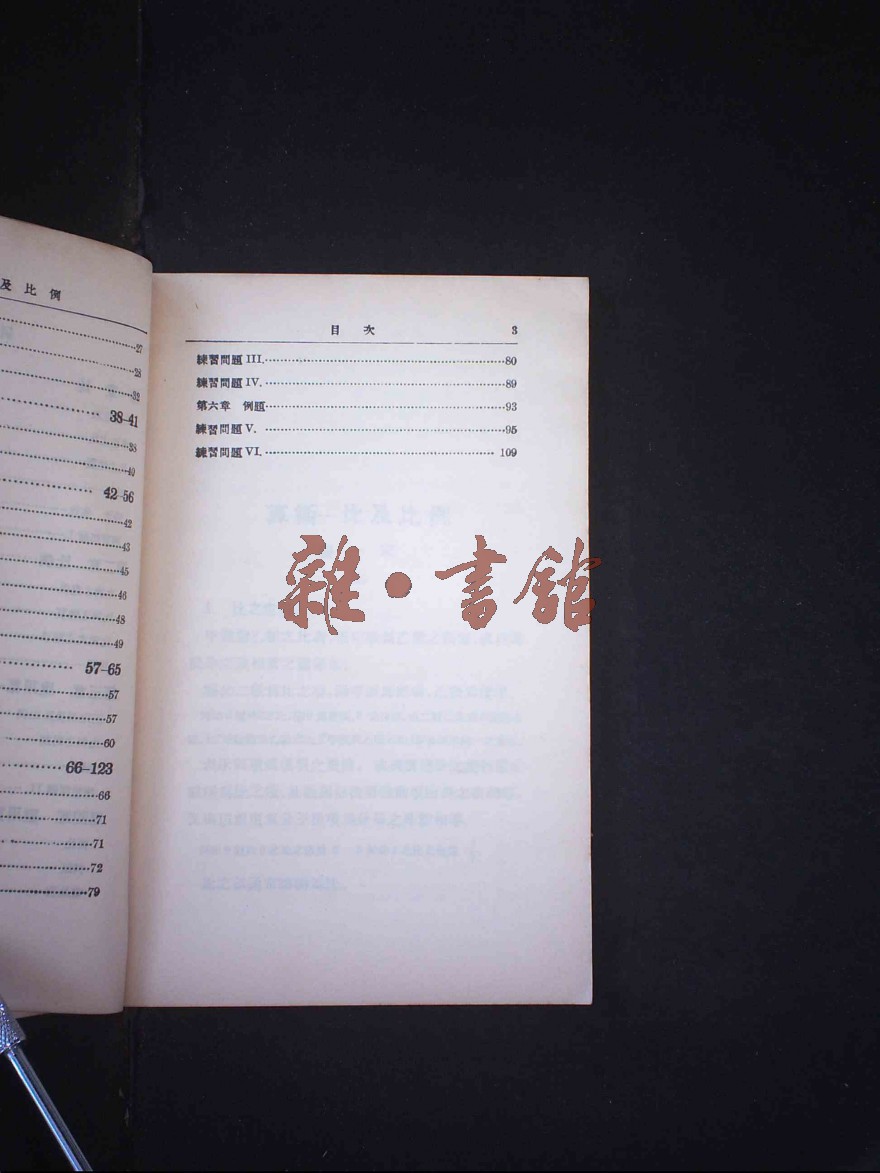 及比例
27
28
32
38-41
38
40
42-56
42
43
45
46
48
49
57-65
57
57
60
66-123
66
71
71
72
79
目次 3
練習問題 III. 80
練習問題 IV. 89
第六章 例題 93
練習問題 V. 95
練習問題 VI. 109
算術 比及比例
雜·書館